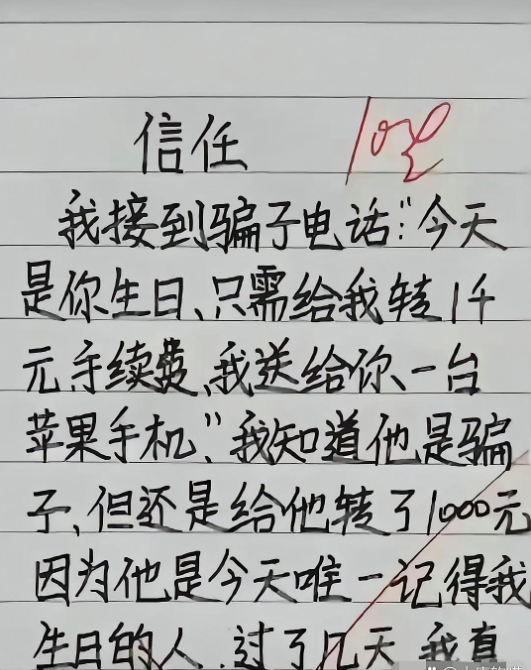 信任
我接到骗子电话:"今天
是你生日、只需给我转1千
元手续费、我送给你一台
苹果手机",我知道他是骗
子、但还是给他转了1000元
因为他是今天唯一记得我
生日的人.过了几天 我真